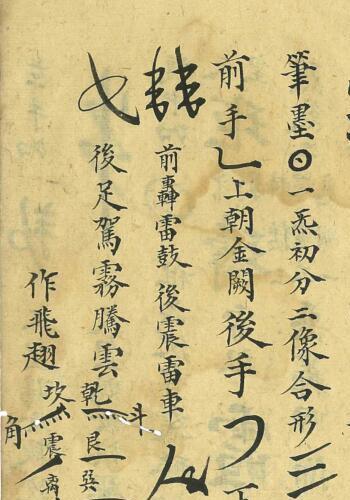 筆墨⊙一炁初分二像合形三
前手乚上朝金闕後手
前轟雷鼓後震雷車
後足駕霧騰雲乾 斗
艮
巽
作飛翅坎
震
角